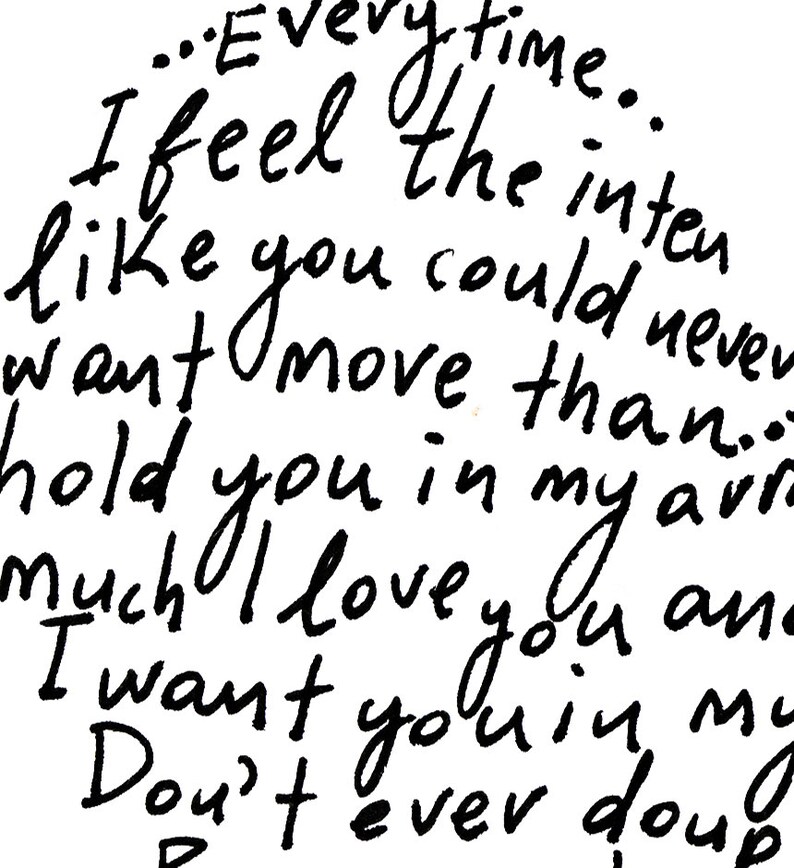 ...Everytime..
I feel the inten
like you could never
want more than...
hold you in my arm
much I love you and
I want you in my
Don't ever doub